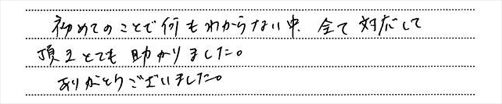 初めてのことで何もわからない中、全て対応して
頂きとても助かりました。
ありがとうございました。